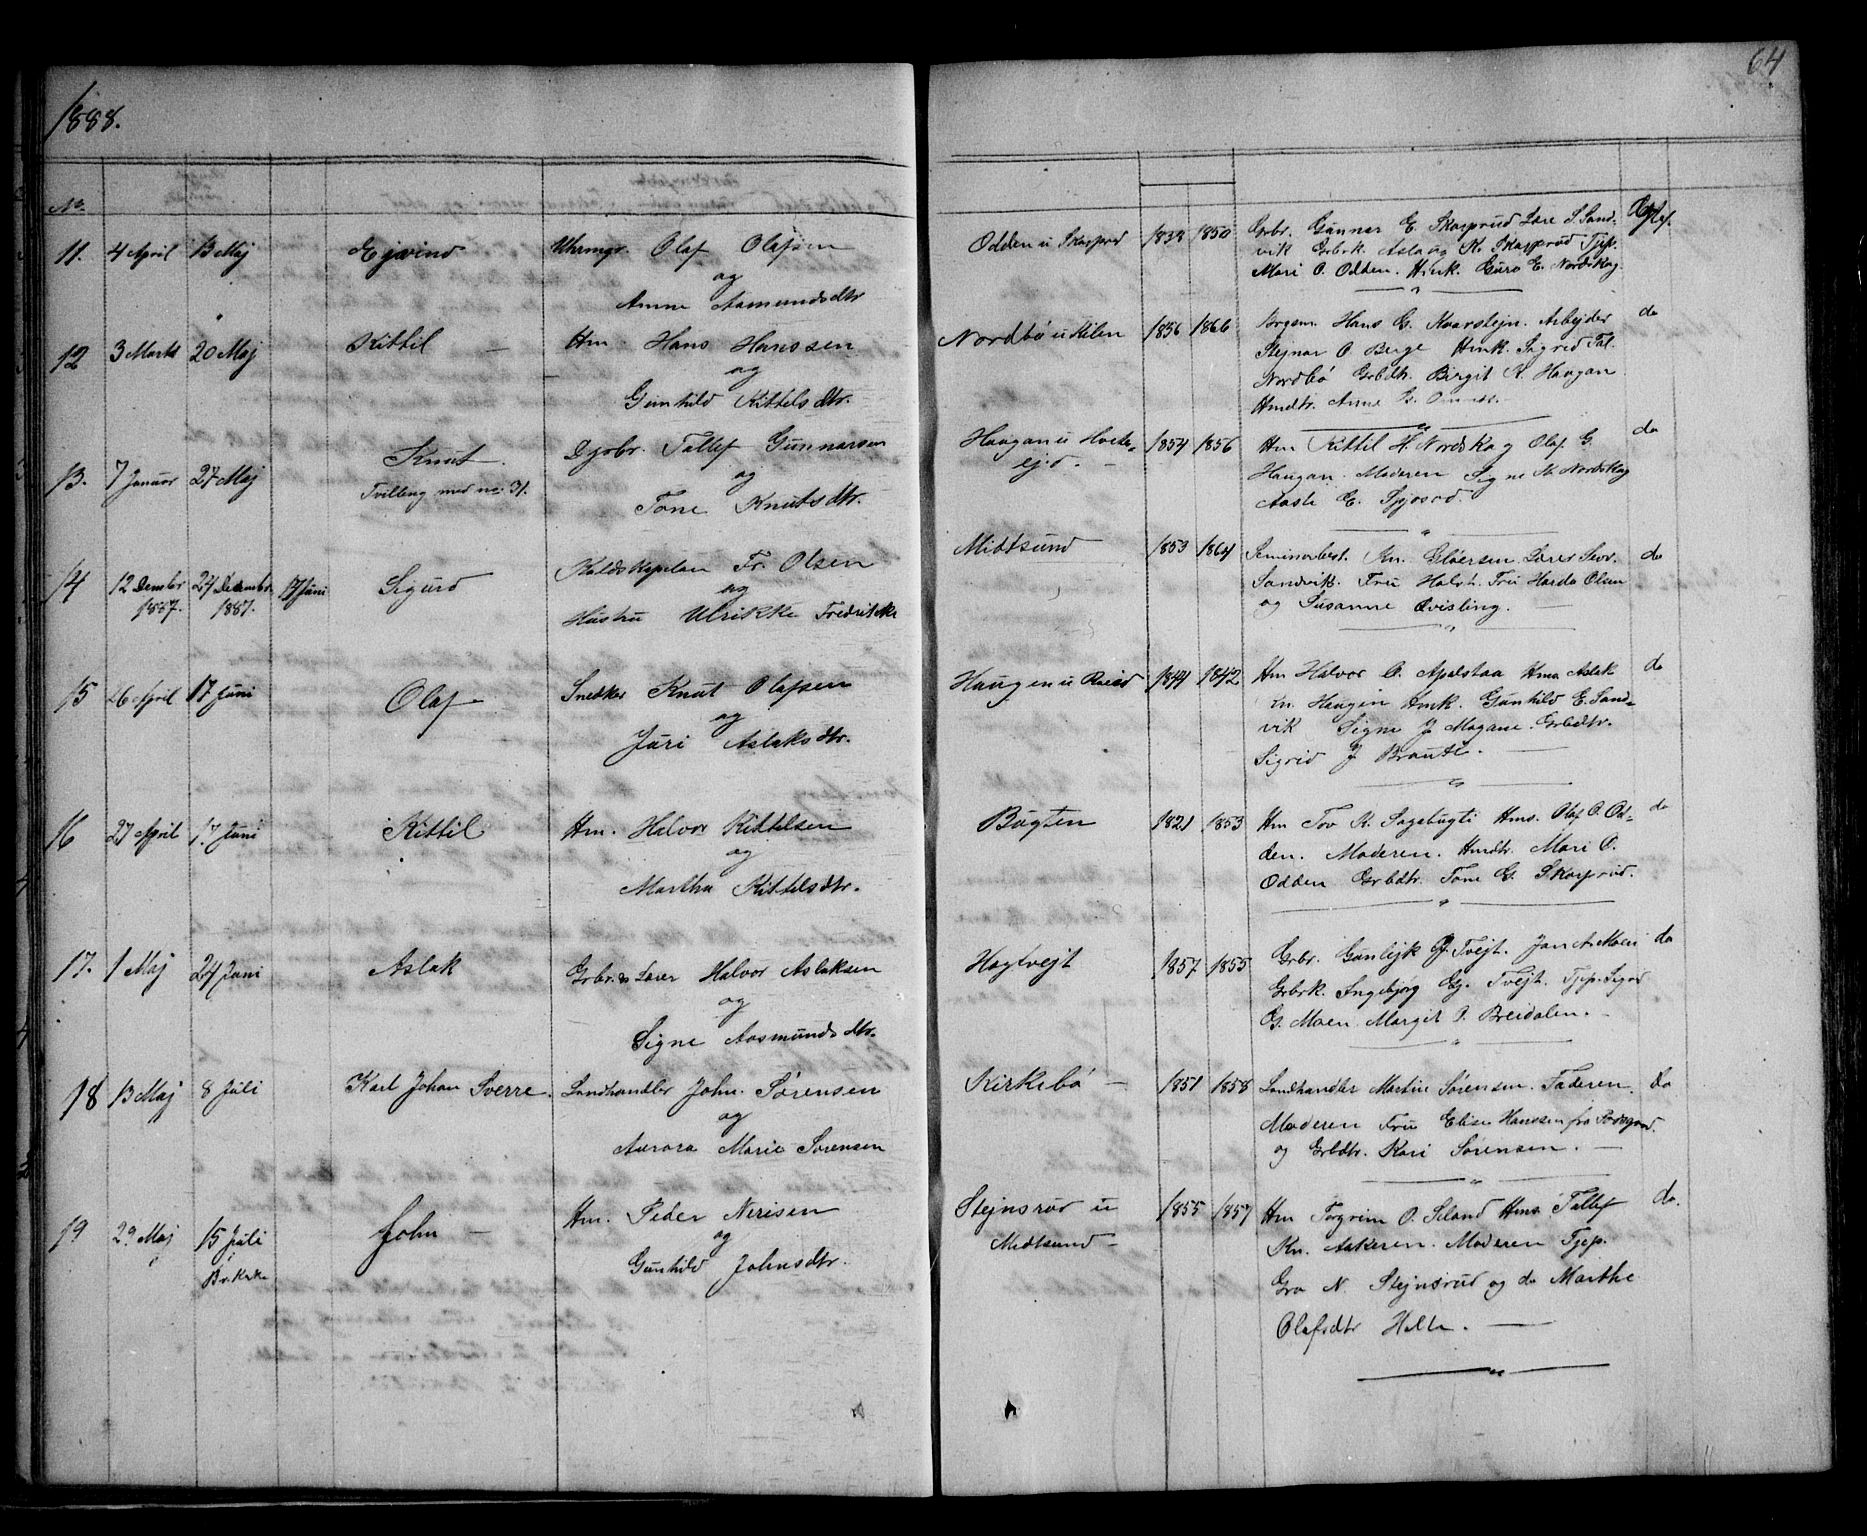 64
1888.
No.
11. 4 April 13 Maj Ejvind Uhrmgr. Olaf Olafsen
og
Anne Aamundsdtr
Odden u Skarprud 1838 1850 Grbr. Gunnar E. Skarprud Lære S. Sand-
vik Grbrk Aslaug K. Skarprud Tjep.
Mari O. Odden. Hmk. Guro E. Nordskog
12 3 Marts 20 Maj Kittil — Hm. Hans Hanssen
og
Gunhild Kittelsdtr.
Nordbö u Kilen 1856 1866 Hans G. Kvarstejn. Arbejder do
Stejnar O. Berge Hmk. Sigrid Tal.
Nordbö Grbdtr. Birgit K. Haugan
Hmdtr. Anne
13. 7 Januar 27 Maj Knut. Gjrbr. Tallef Gunnarsen
Tvilling med no: 31. og
Tone Knutsdtr.
Haugan u
ejd. — 1854 1856 Hm Kittil H. Nordskog Olaf G. do
Haugan. Moderen Signe Nordskog
Aaste E.
14 12 Dember 27 Decembr. 17 Juni Sigurd Kaldskapelan Fr. Olsen
1887. 1887. og
Hustru Ulrikke Fredrikke
Midtsund 1853 1864 Seminarbest. Kn. Gløersen Lærer Sevr. do
Sandvik. Fru Holst. Fru Harda Olsen
og Susanne Qvisling. —
15 26 April 17 Juni Olaf — Snedker Knut Olafsen
og
Juri Aslaksdtr.
Haugen u 1844 1842 Hm Halvor O. Apalstaa Hms Aslak do
Kn. Haugen Hmk. Gunhild E. Sand-
vik Signe J Mogane. Grbdtr.
Sigrid J Braute. —
16 27 April 17. Juni Kittil Hm. Halvor Kittelsen
og
Martha Kittelsdtr.
Bugten 1821 1853 Hm Tov K. Sagebugti Hms. Olaf O. Od- do
den. Moderen. Hmdtr. Mari O.
Odden Grbdtr. Tone G. Skarprud.
17. 1 Maj 24 Juni Aslak Grbr. & Lærer Halvor Aslaksen
og
Signe Aasmundsdtr.
Hogtvejt 1857 1855 Grbr. Gunlejk Gj Tvejt. Jon A. Moen do
Grbrk. Ingebjørg Gj. Tvejt. Tjep. Sigrd
G. Moen Margit O. Breidalen. —
18 13 Maj 8 Juli Karl Johan Sverre. Landhandler John. Sørensen
og
Aurora Marie Sørensen
Kirkebö — 1851 1858 Landhandler Martin Sørensen. Faderen. do
Moderen Fru Elise Hanssen fra
og Grbdtr. Kari Sørensen. —
19 29 Maj 15 Juli John — Hm. Peder Nerisen
Br. Kirke og
Gunhild Johnsdtr.
Stejnsrud u
Midtsund — 1855 1857 Hm Torgrim O. Seland Hms. Tallef do.
Kn. Aakeren. Moderen Tjep.
Gro N. Stejnsrud og do Marthe
Olafsdtr Helte. —